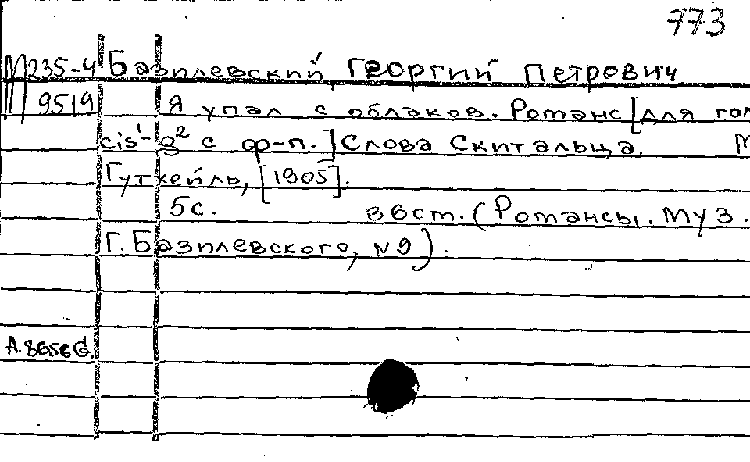 773
М235-4 Базилевский, Георгий Петрович
9519 Я упал с облаков. Романс [для гол
cis¹-g² с ф-п.] Слова Скитальца. М
Гутхейль, [1905].
5с. в вст. (Романсы. Муз.
Г. Базилевского, №9).